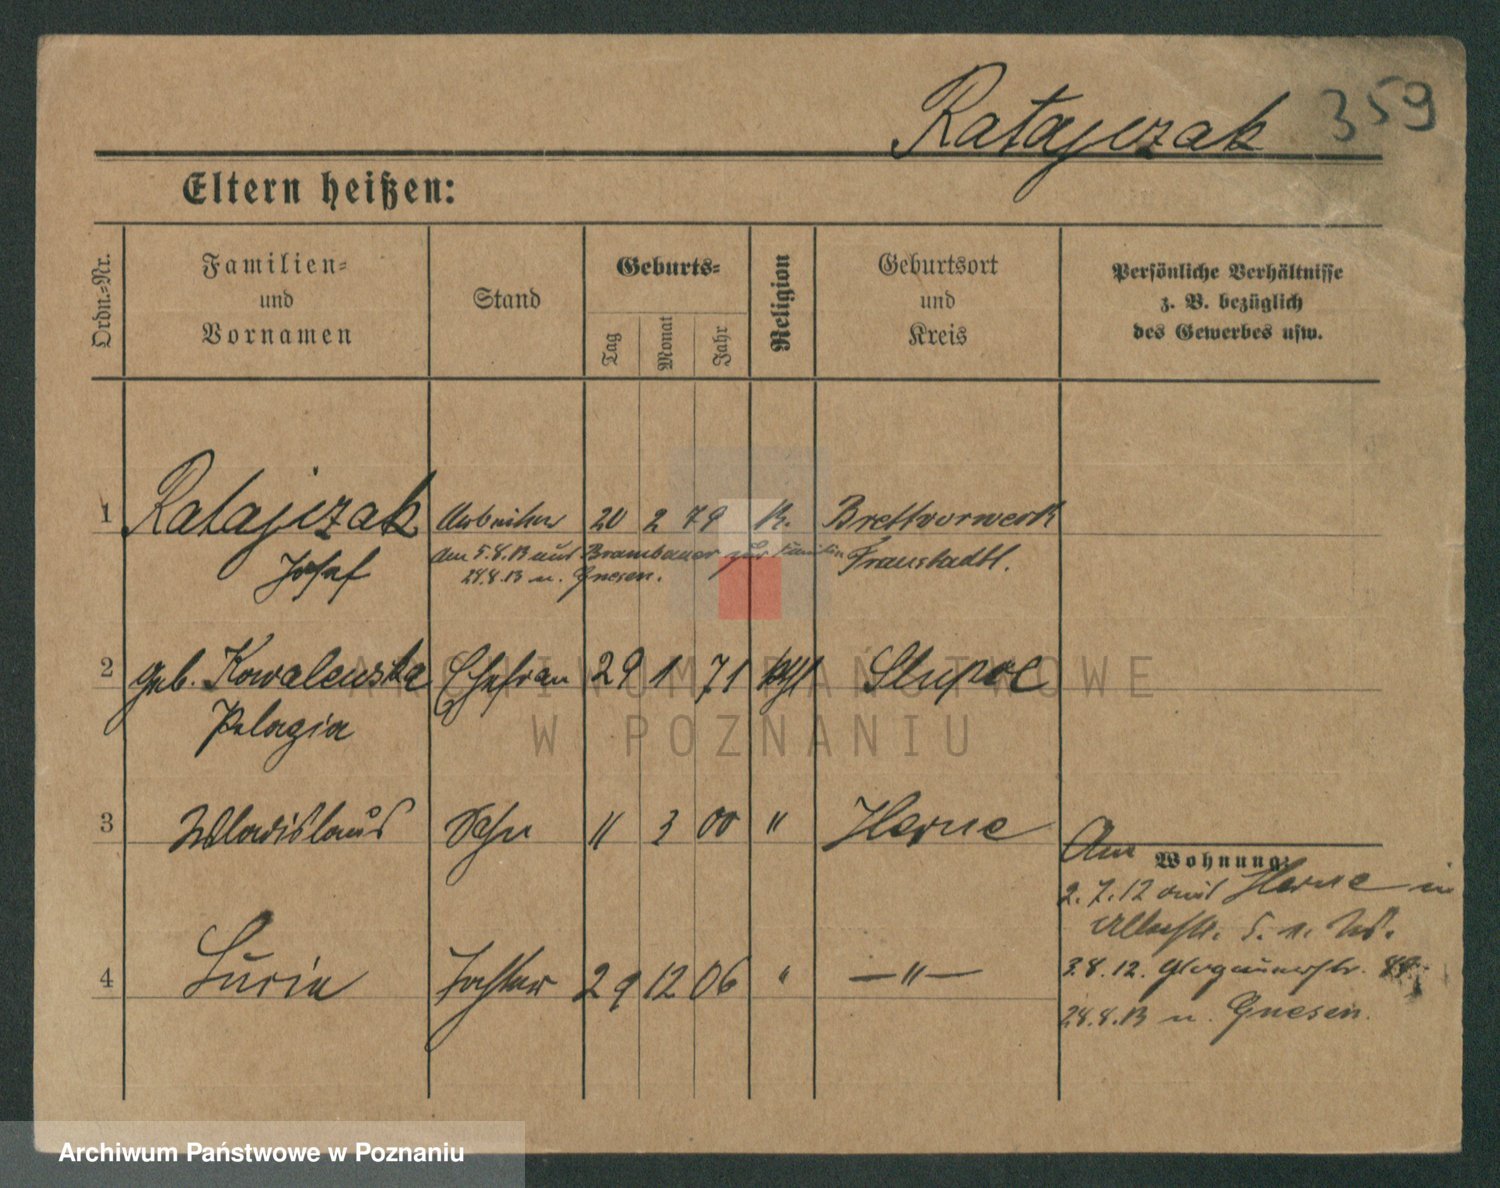 Ratajczak 359
Eltern heißen:
Ordn.-Nr.
Familien-
und
Vornamen
Stand
Geburts-
Tag
Monat
Jahr
Religion
Geburtsort
und
Kreis
Persönliche Verhältnisse
z. B. bezüglich
des Gewerbes usw.
1 Ratajczak Arbeiter 20 2 79 K. Brettvorwerk
Josef
Am 5.8.13 aus Brambauer zur Familie
Fraustadt.
24.8.13 n. Gnesen.
2 geb. Kowalewska Ehefrau 29 1 71 kath Slupoc
Pelagia
3 Wladislaus Sohn 11 3 00 " Herne
4 Tochter 29 12 06 " —"—
Wohnung:
Am
2.7.12 aus Herne in
5.
3.8.12.
24.8.13 n. Gnesen.
ARCHIWUM PAŃSTWOWE
W POZNANIU
Archiwum Państwowe w Poznaniu